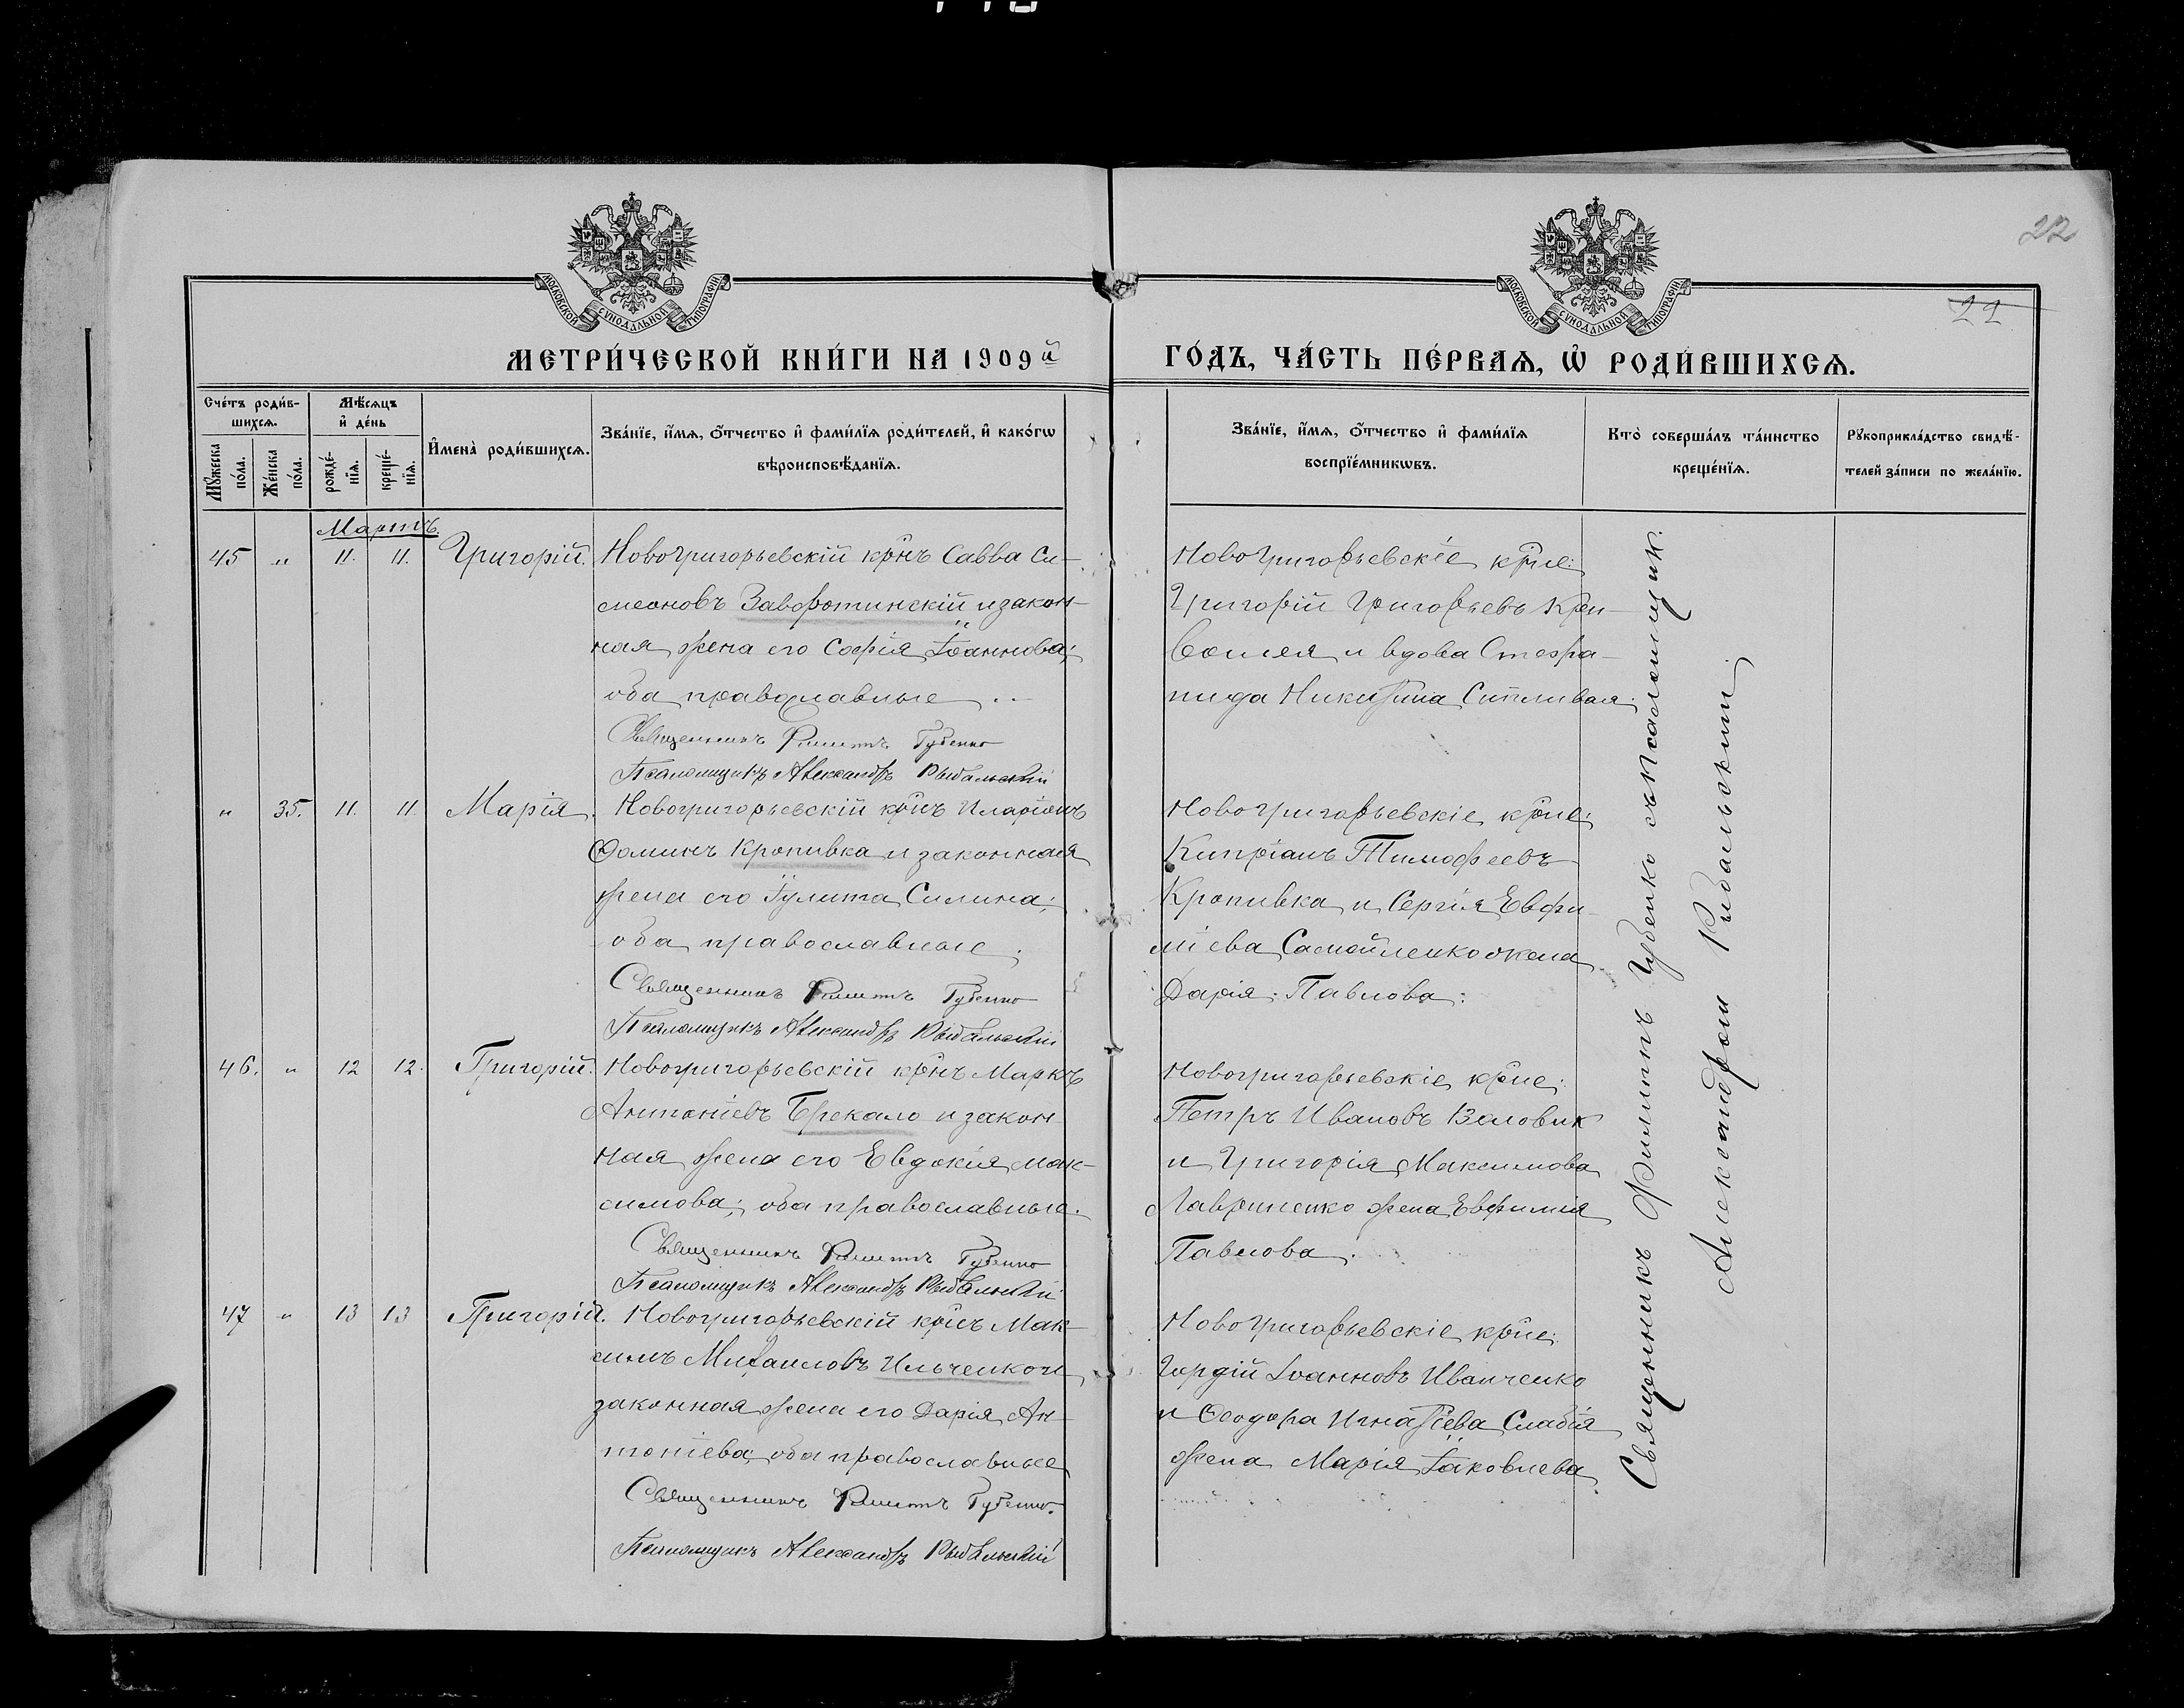 22
22
МОСКОВСКОЙ СУНОДАЛЬНОЙ ТИПОГРАФІИ
МОСКОВСКОЙ СУНОДАЛЬНОЙ ТИПОГРАФІИ
МЕТРИ́ЧЕСКОЙ КНИ́ГИ НА 1909й
ГО́ДЪ, ЧА́СТЬ ПЕ́РВАѦ, Ѡ҆ РОДИ́ВШИХСѦ.
Сче́тъ роди́в-
шихсѧ.
Мꙋ́жеска по́ла.
Же́нска по́ла.
Мѣ́сѧцъ
и҆ де́нь
рожде́-
нїѧ.
креще́-
нїѧ.
И҆мена̀ роди́вшихсѧ.
Зва́нїе, и҆́мѧ, ѻ҆́тчество и҆ фами́лїѧ роди́телей, и҆ како́гѡ
вѣроисповѣ́данїѧ.
Зва́нїе, и҆́мѧ, ѻ҆́тчество и҆ фами́лїѧ
воспрїе́мникѡвъ.
Кто̀ соверша́лъ та́инство
креще́нїѧ.
Рꙋкоприкла́дство свидѣ́-
телей за́писи по жела́нїю.
Мартъ
45 " 11. 11. Григорій. Новогригорьевскій крнъ Савва Си-
меоновъ Заворотинскій и закон-
ная жена его Софія Іоаннова;
оба православные
Священникъ Филиппъ Губенко
Псаломщикъ Александръ Рыбальскій
Новогригорьевскіе крне:
Григорій Григорьевъ Кри-
вошея и вдова Стефа-
нида Никитина Сипливая.
" 35. 11. 11. Марія. Новогригорьевскій крнъ Иларіонъ
Ѳоминъ Кропивка и законная
жена его Іулита Силина;
оба православные.
Священникъ Филиппъ Губенко
Псаломщикъ Александръ Рыбальскій
Новогригорьевскіе крне:
Кипріанъ Тимофеевъ
Кропивка и Сергія Евфи-
міева Самойленко жена
Дарія Павлова.
46. " 12 12. Григорій. Новогригорьевскій крнъ Маркъ
Антоніевъ Брекало и закон-
ная жена его Евдокія Мак-
симова; оба православные.
Священникъ Филиппъ Губенко
Псаломщикъ Александръ Рыбальскій
Новогригорьевскіе крне:
Петръ ИвановъВаловик
и Григорія Максимова
Гавриленко жена Евфимія
Павлова.
47 " 13 13 Григорій. Новогригорьевскій крнъ Мак-
симъ Михаиловъ Ильченко и
законная жена его Дарія Ан-
тоніева; оба православные
Священникъ Филиппъ Губенко.
Псаломщикъ Александръ Рыбальскій
Новогригорьевскіе крне:
Гордій Іоанновъ Иванченко
и Ѳеодора Игнатіева Слабія
жена Марія Іаковлева.
Священникъ Филиппъ Губенко съ Псаломщик.
Александром Рыбальским.